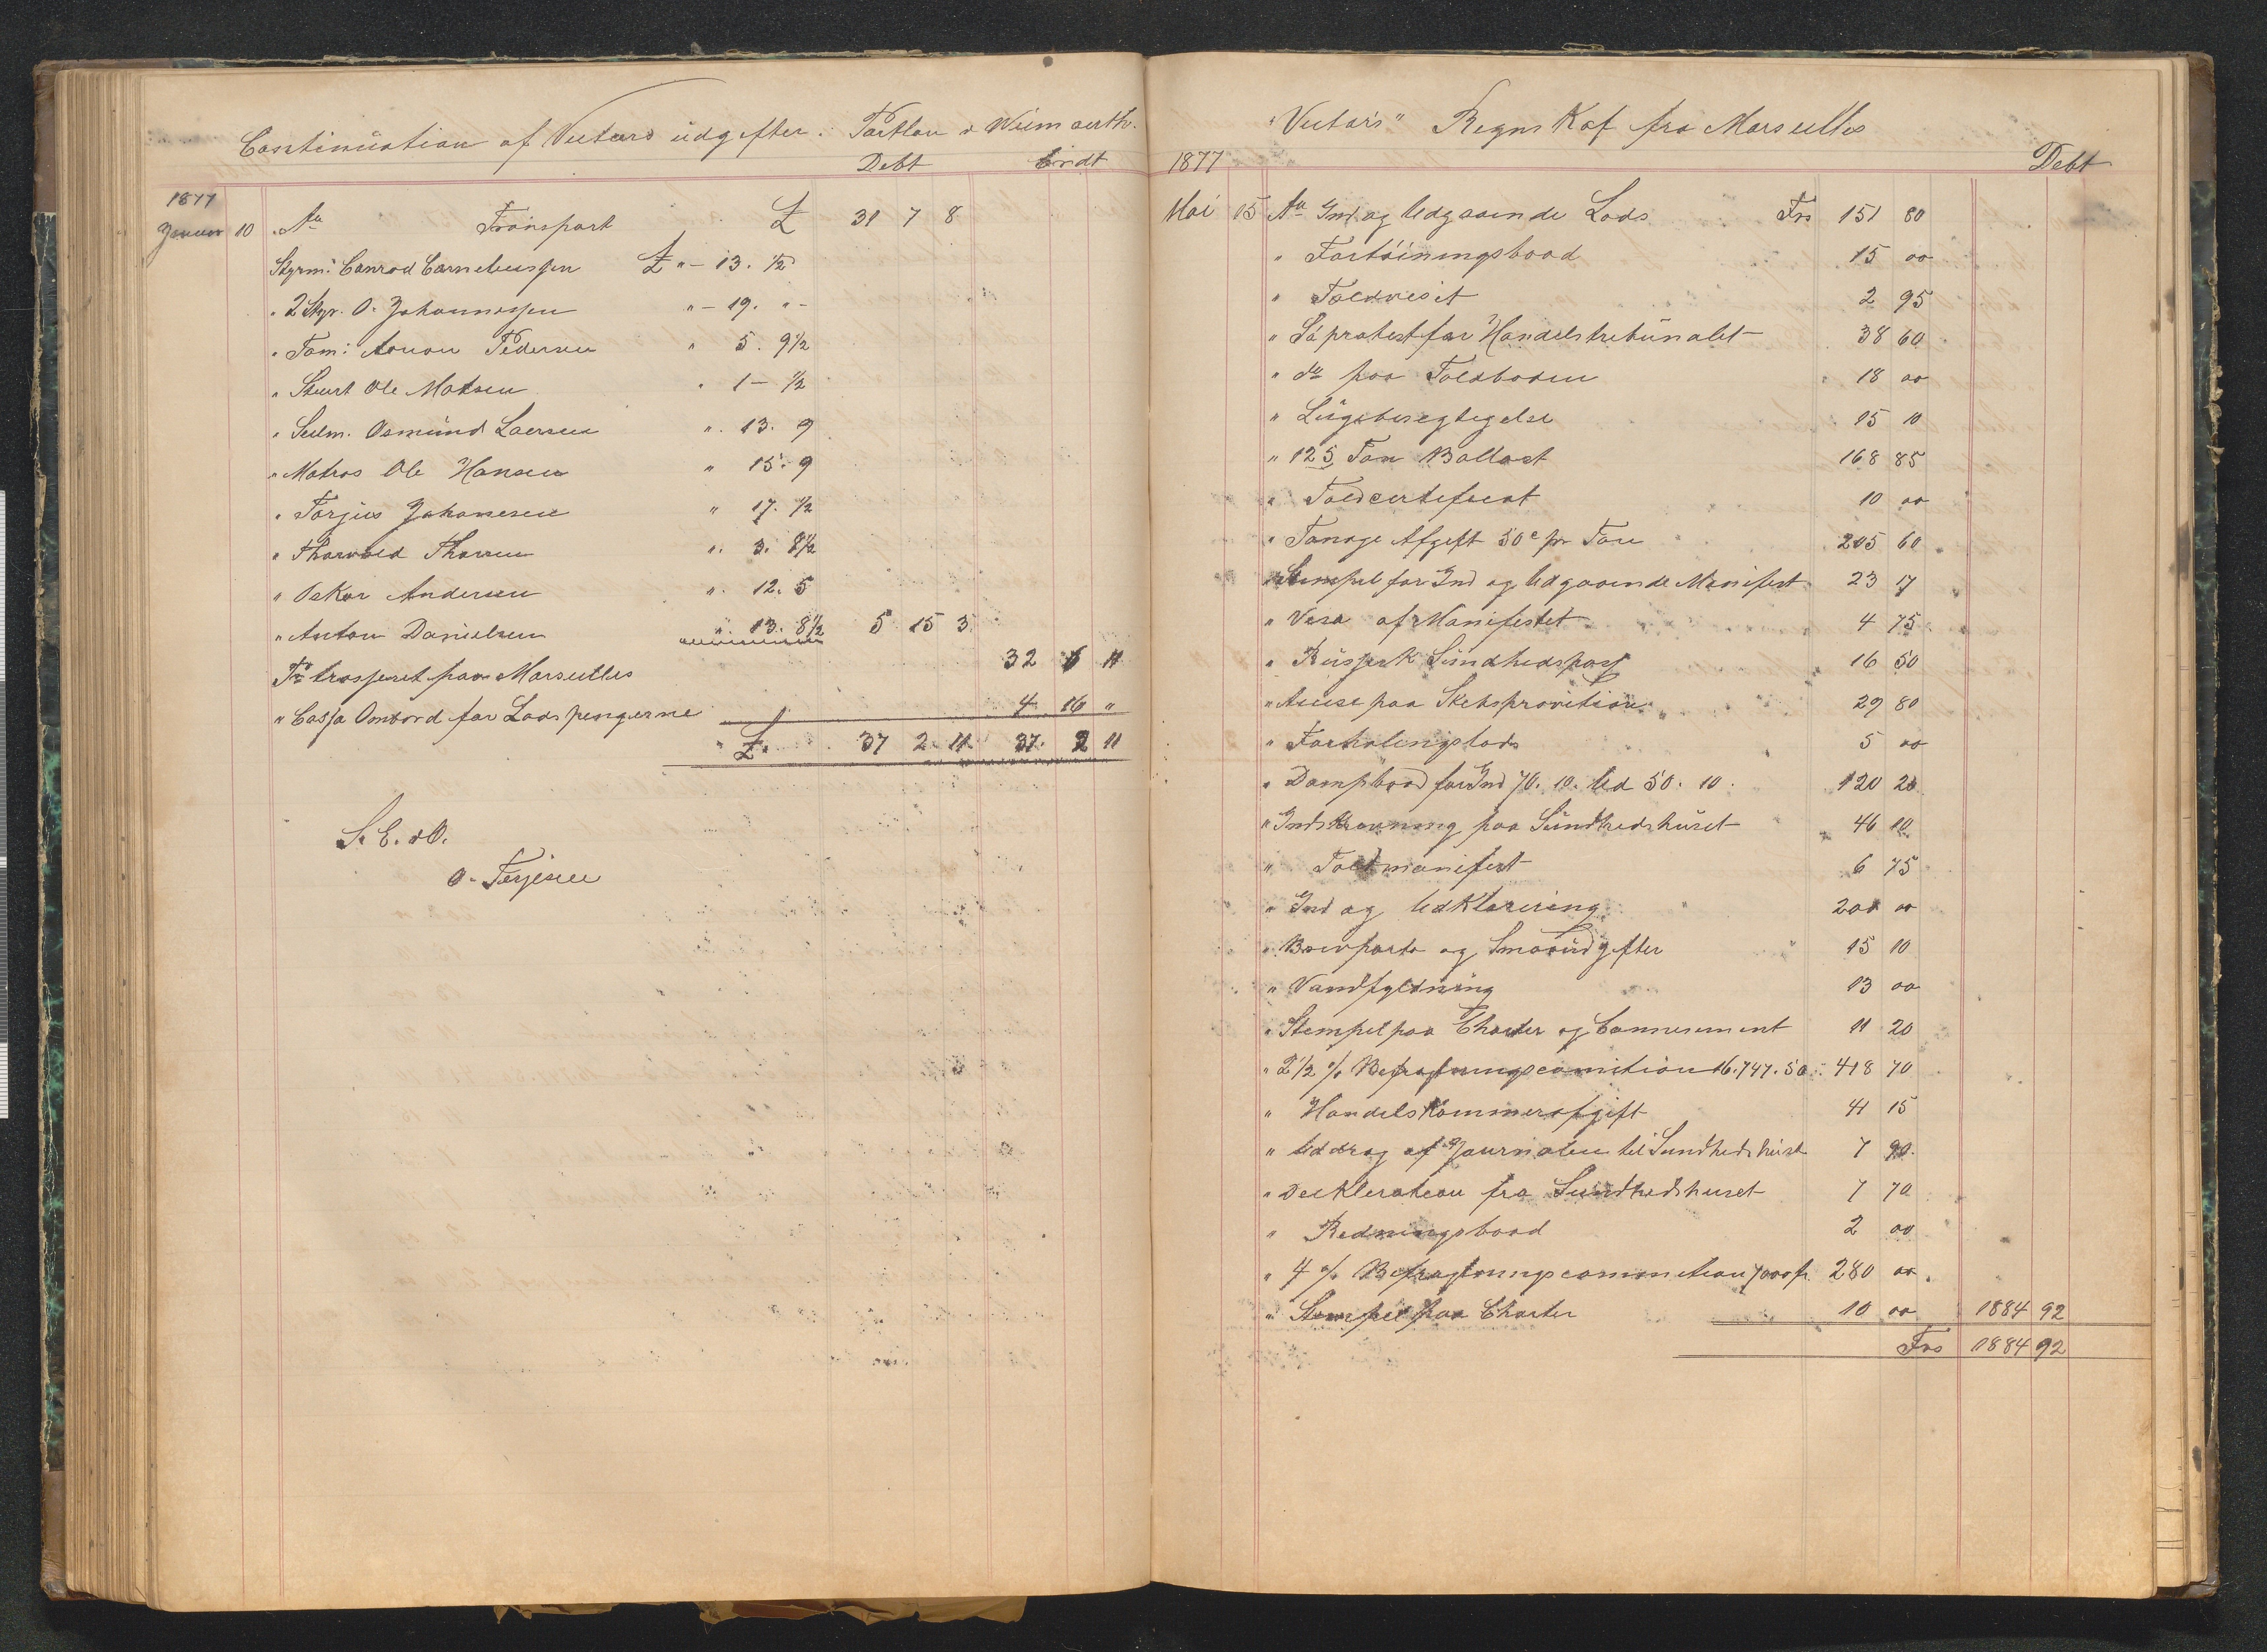 Continuation af Victors udgifter. Portlan & Weimouth.
Debt Credt
1877
Januar 10 An Transport £ 31 7 8
Styrm: Conrad Corneliussen £ " – 13. ½
" 2 Styr. O. Johannesen " – 19. " –
" Tøm: Anton Pedersen " 5. 9½
" Stuert Ole Matsen " 1 – ½
" Seilm. Osmund Larsen " 13. 9
" Matros Ole Hansen " 15. 9
" Torjus Johanesen " 17. ½
" Tharvald Thorsen " 3. 8½
" Oskar Andersen " 12. 5
" Anton Danielsen " 13. 8½ 5 15 3
Pr trasseret paa Marseilles 32 6 11
" Cassa Ombord for Lodspengerne 4 16 "
£ 37 2 11 37. 2 11
S. E. & O.
O. Terjesen
"Victors" Regnskaf fra Marseilles
1877 Debt
Mai 15 An Ind og Udgaaende Lods Frs 151 80
" Fortöiningsbaad 15 00
" Toldvisit 2 95
" Söprotest for Handelstribünalet 38 60
" do paa Toldboden 18 00
" Lügebesegtigelse 15 10
" 125 Ton Ballast 168 85
" Toldcertificat 10 00
" Tonage Afgift 50c pr Ton 205 60
" Stempel for Ind og Udgaaende Manifest 23 17
" Visa af Manifestet 4 75
" Rüssisk Sündhedspas 16 50
" Acuse paa Skibsprovition 29 80
" Forhalingslods 5 00
" Dampbaad for Ind 70. 10. Ud 50. 10. 120 20
" Indskrivning paa Sündhedshüset 46 10
" Toldmanifest 6 75
" Ind og Udklarering 200 00
" Brevporto og Smaaüdgifter 15 10
" Vandfyldning 13 00
" Stempel paa Charter og Connisement 11 20
" 2½ % Befragtningscomition 16.747.50 418 70
" Handelskammerafgift 41 15
" Uddrag af Journalen til Sundhedshüset 7 90
" Decklaration fra Sundhedshuset 7 70
" Redningsbaad 2 00
" 4 % Befragtningscommition 7000 fr 280 00
" Stempel paa Charter 10 00 1884 92
Frs 1884 92